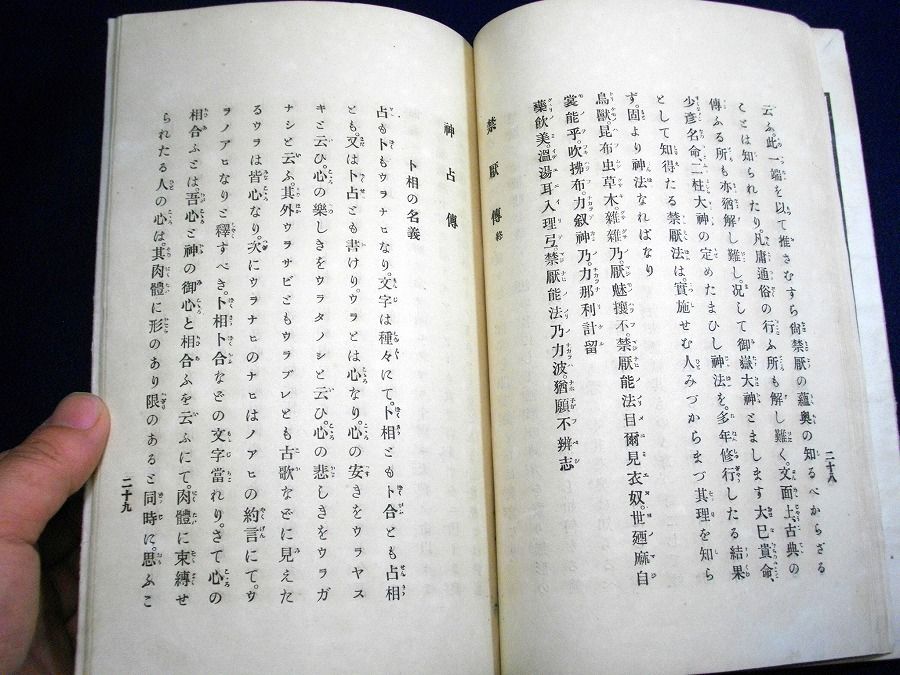 二十八
云ふ、此一端を以て推さむすら尙禁厭の蘊奥の知るべからざる
ことは知られたり、凡庸通俗の行ふ所も解し難く、文面上、古典の
傳ふる所も亦猶解し難し況して御嶽大神とまします大已貴命、
少彦名命、二柱大神の定めたまひし神法を、多年修行したる結果
として知得たる禁厭法は、實施せむ人みづからまづ其理を知ら
ず。固より神法なればなり
鳥獸、昆布虫草木、雜雜乃、厭魅攘不、禁厭能法目爾見衣奴。世廼麻自
裳能乎、吹拂布。力叙神乃、力那利計留
藥飮美。溫湯耳入理弖、禁厭能法乃力波。猶願不辨志
禁厭傳終
神占傳
卜相の名義
占も卜もウラナヒなり。文字は種々にて。卜相とも卜合とも占相
とも。又は卜占とも書けり。ウラとは心なり。心の安きをウラヤス
キと云ひ。心の樂しきをウラタノシと云ひ。心の悲しきをウラガ
ナシと云ふ。其外ウラサビともウラブレとも古歌などに見えた
るウラは皆心なり。次にウラナヒのナヒはノアヒの約言にて。ウ
ラノアヒなりと釋すべき。卜相卜合などの文字當れり。さて心の
相合ふとは。吾心と神の御心と相合ふを云ふにて。肉體に束縛せ
られたる人の心は。其肉體に形のあり限のあると同時に。思ふこ
二十九